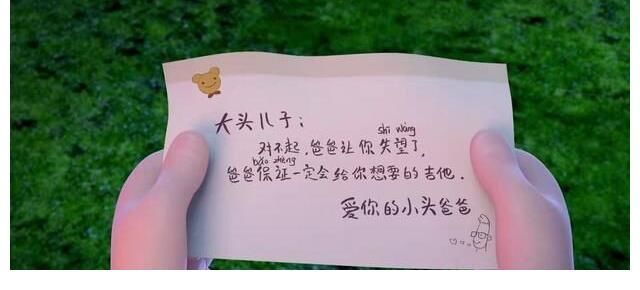 大头儿子：
shī wàng
对不起，爸爸让你失望了，
bǎo zhèng
爸爸保证一定会给你想要的吉他．
爱你的小头爸爸